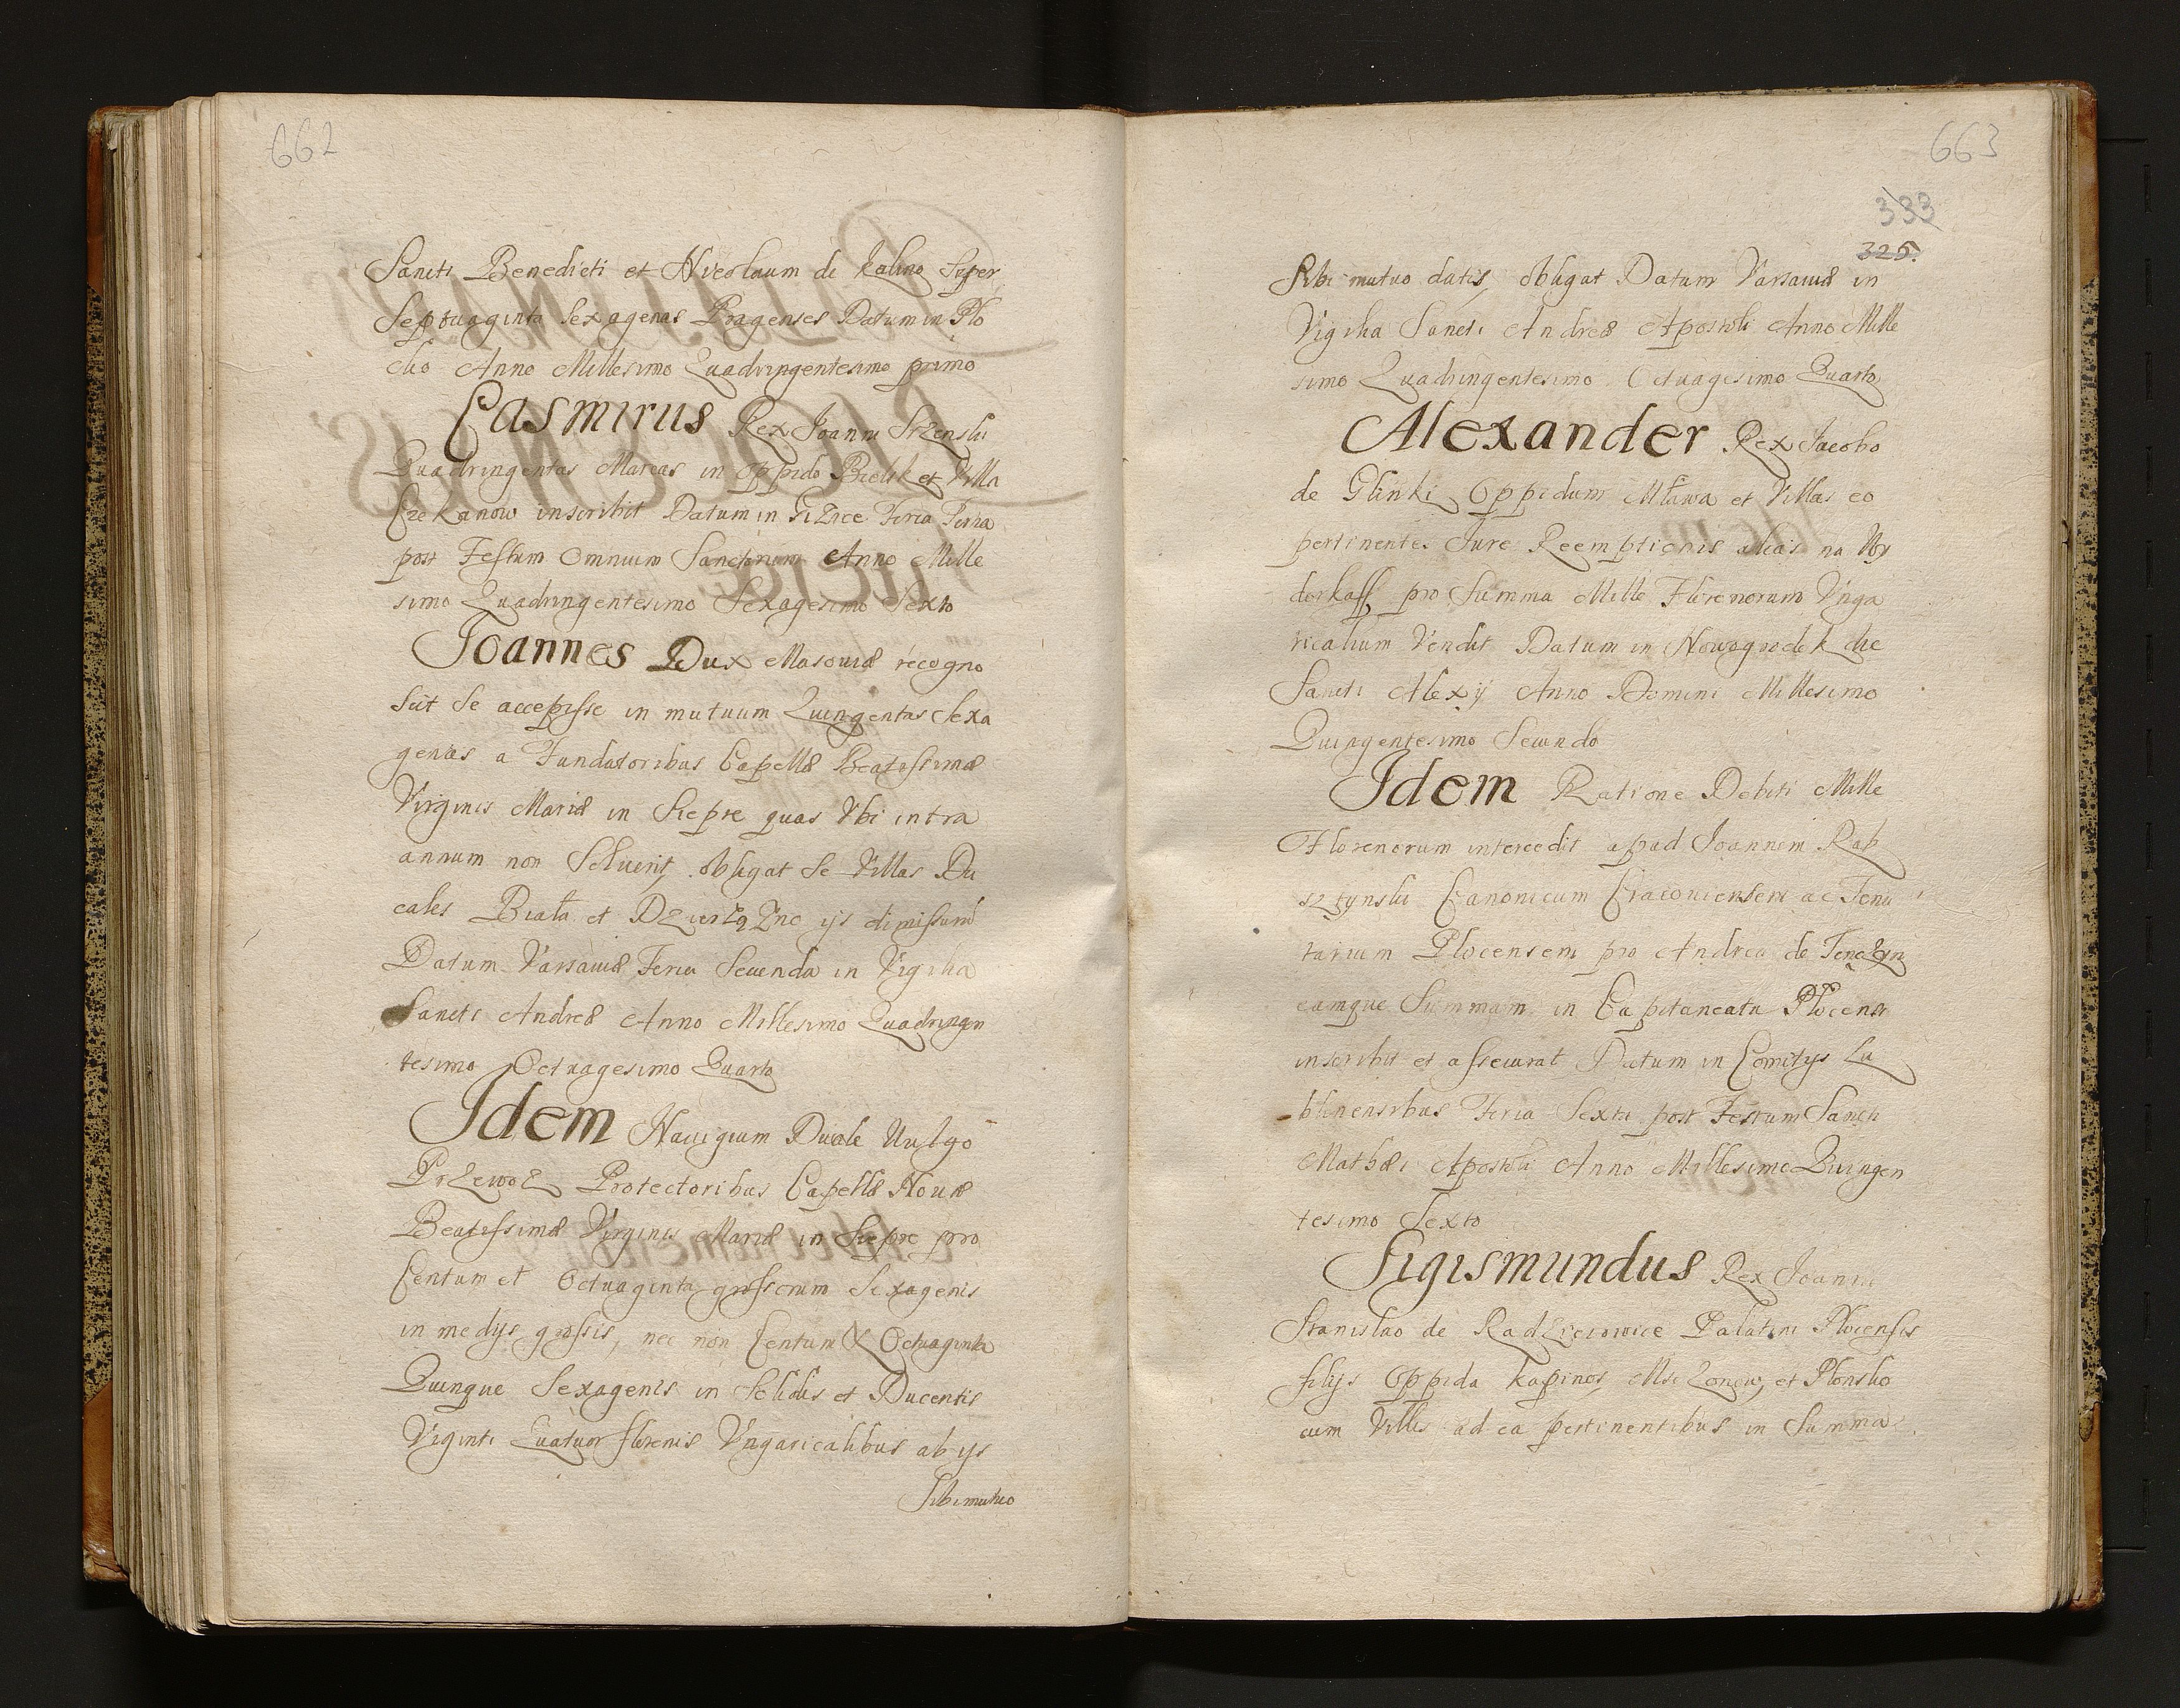 662
Sancti Benedicti et Nicolaum de Kalino Super
Septuaginta Sexagenas Pragenses Datum in Plo
cko Anno Millesimo Quadringentesimo primo
Casmirus Rex Joanni Srzenski
Quadringentas Marcas in Oppido Bielsk et Villa
Czekanow inscribit Datum in Feria Tertia
post Festum Omnium Sanctorum Anno Mille
simo Quadringentesimo Sexagesimo Sexto
Joannes Dux Masoviæ recogno
scit Se accepisse in mutuum Quingentas Sexa
genas a Fundatoribus Capellæ Beatissimæ
Virginis Mariæ in Siepre quas Vbi intra
annum non Soluerit, obligat Se Villas Du
cales Biała et ijs dimissurũ
Datum Varsaviæ Feria Secunda in Vigilia
Sancti Andreæ Anno Millesimo Quadringen
tesimo Octuagesimo Quarto
Idem Navigium Ducale Vulgo
Przewoz Protectoribus Capellæ Novæ
Beatissimæ Virginis Mariæ in Siepre pro
Centum et Octuaginta grossorum Sexagenis
in medijs grossis, nec non Centum & Octuaginta
Quinque Sexagenis in Solidis et Ducentis
Viginti Quatuor florenis Vngaricalibus ab ijs
Sibi mutuo
663
333
325.
Sibi mutuo datis, obligat Datum Varsaviæ in
Vigilia Sancti Andreæ Apostoli Anno Mille
simo Quadringentesimo Octuagesimo Quarto
Alexander Rex Jacobo
de Glinki Oppidum Mława et Villas eo
pertinentes Jure Reemptionis alias na Wy
derkaff pro Summa Mille Florenorum Vnga
ricalium Vendit Datum in Nowogrodek die
Sancti Alexij Anno Domini Millesimo
Quingentesimo Secundo
Idem Ratione Debiti Mille
Florenorum intercedit apud Joannem Rap
sztynski Canonicum Cracoviensem ac Tenu
tarium Plocensem pro Andrea de Tenczyn
eamque Summam in Capitaneatu Plocensi
inscribit et assecurat Datum in Comitijs Lu
blinensibus Feria Sexta post Festum Sancti
Mathæi Apostoli Anno Millesimo Quingen
tesimo Sexto
Sigismundus Rex Joanni
Stanislao de Radzieiowice Palatini Plocensis
filijs Oppida Kapinos, Msczonow, et Plonsko
cum Villis ad ea pertinentibus in Summa